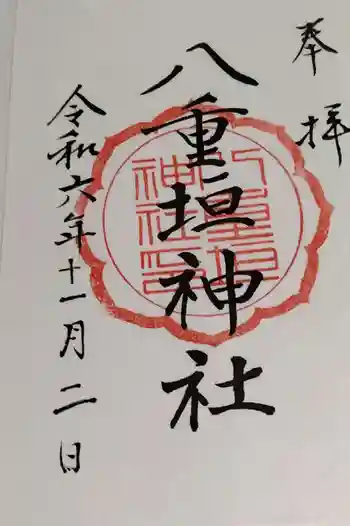 奉拝
八重垣神社
八重垣神社印
令和六年十一月二日